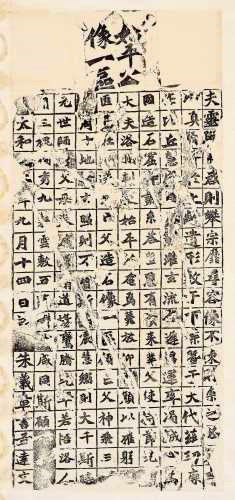 始平公
像一區
夫靈則攀宗靡尋容像不陳則崇之必
真顏於上齡遺形敷於下葉暨于大代茲功
厥作比丘慧成自以影濯玄流邀逢昌運竭誠為
國造石窟系答皇恩有資來業父使持節光
大夫洛州刺史始平公奄焉薨放仰慈顏以摧躬
匪烏在遂為亡父造石像一區願亡父神飛三
智周十地玄照則万斯明震慧嚮則大千斯
元世師僧父母眷屬鳳翥道場鸞騰兜率若悟洛人
間三槐獨秀九棘雲敷五有群生咸同斯願
太和年九月十四日訖朱義章書孟達文